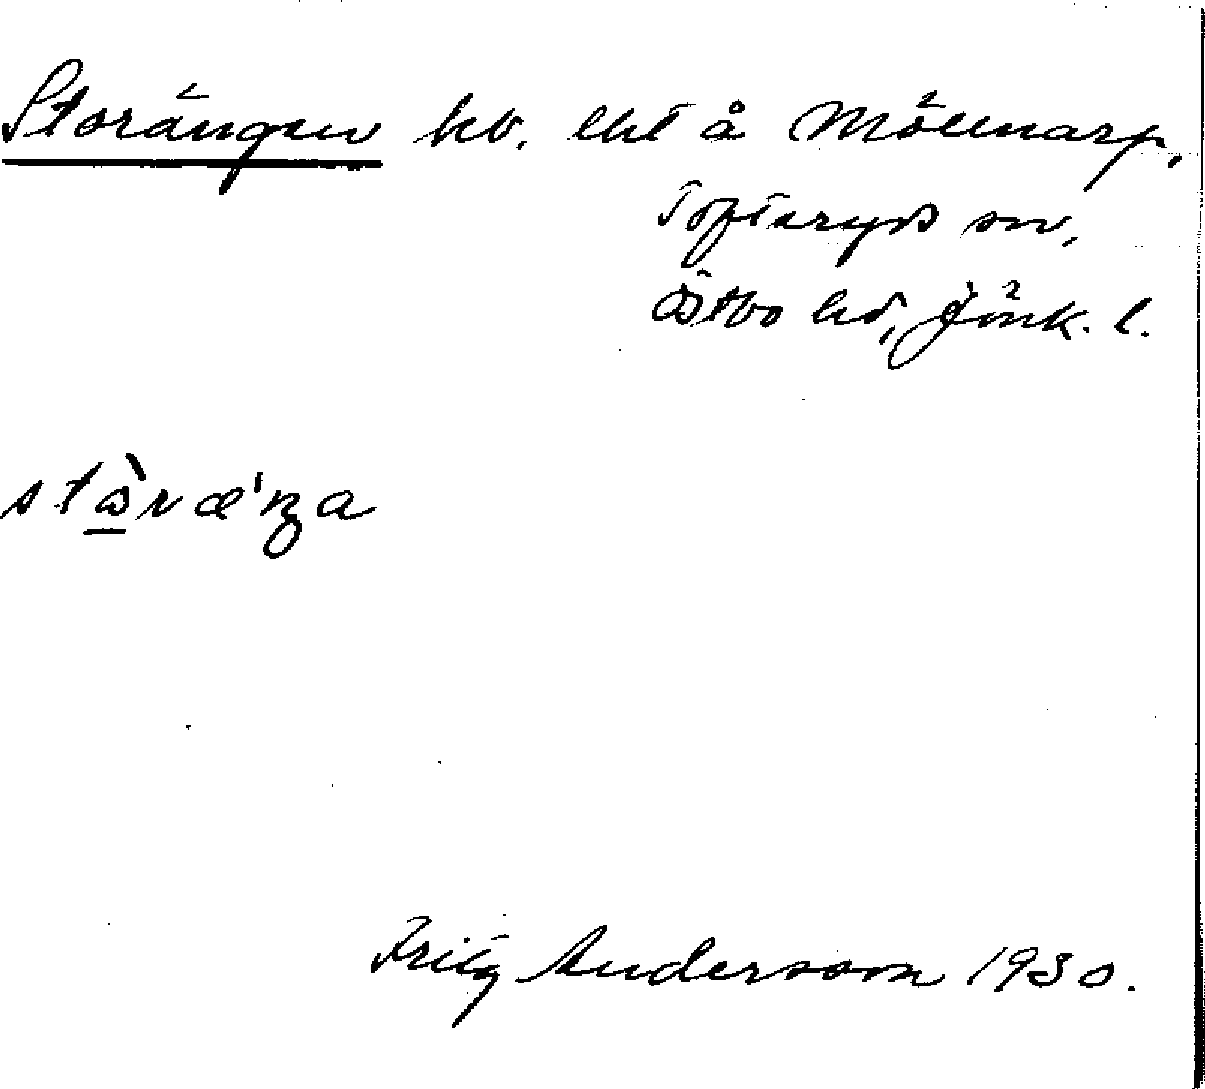 Storängen hv. lht å Möllnarp,
Tofteryds sn,
Östbo hd, Jönk. l.
Fritz Andersson 1930.